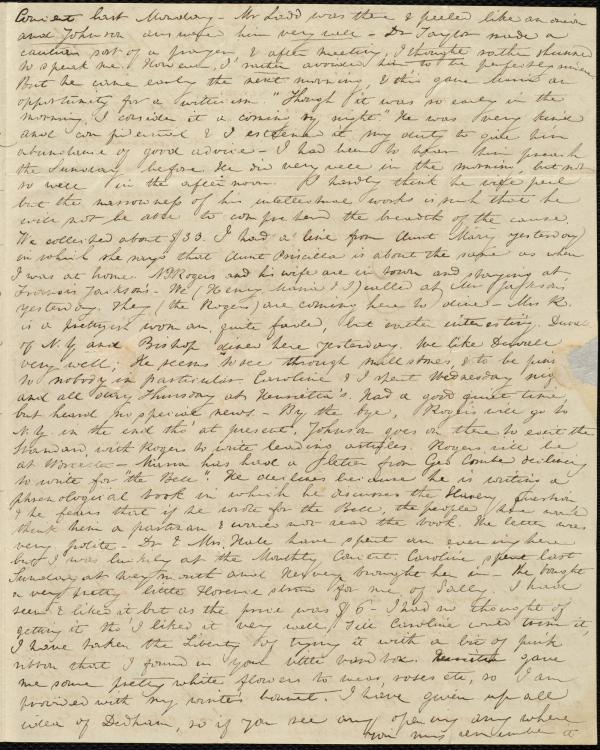 Concert last Monday - Mr Ladd was there & peeled like an onion
and Johnson answered him very well - Dr Taylor made a
cautious sort of a prayer, & after meeting, I thought rather shunned
to speak me. However, I rather avoided him to be perfectly sincere
But he came early the next morning, & this gave Maria an
opportunity for a witticism. "Though it was so early in the
morning, I consider it a coming by night." He was very kind
and confidential & I esteemed it my duty to give him
abundance of good advice - I had been to hear him preach
the Sunday before. He did very well in the morning, but not
so well in the afternoon. I hardly think he will peel
but the narrowness of his intellectual works is such that he
will not be able to comprehend the breadth of the cause.
We collected about $33. I had a line from Aunt Mary yesterday
in which she says that Aunt Priscilla is about the same as when
I was at home. N P Rogers and his wife are in town and staying at
Francis Jackson's - We (Henry, Maria & I) called at Mr Jackson's
yesterday. They (the Rogers) are coming here to dine - Mrs R.
is a pretty woman, quite faded, but rather interesting.
of N. Y. and Bishop dined here yesterday. We like
very well; He seems to see through millstones, & to be
to nobody in particular. Caroline & I spent Wednesday night
and all day Thursday at Henrietta's. Had a good quiet time,
but heard no special news. - By the bye, Rogers will go to
N.Y. in the end tho' at present, Johnson goes on there to edit the
Standard, with Rogers to write leading articles. Rogers will be
at Worcester - Maria has had a letter from Geo Combe declining
to write for "the Bell". He declines because he is writing a
phrenological book in which he discusses the Slavery question
& he fears that if he wrote for the Bell, the people here would
think him a partizan & would not read the book. The letter was
very polite - Dr & Mrs. have spent an evening here
but I was luckily at the Monthly Concert. Caroline spent last
Sunday at Weymouth and Hervey brought her in - She bought
a very pretty little Florence straw for me of Sally. I have
seen & liked it but as the price was $6 - I had no thought of
getting it tho' I liked it very well, till Caroline would
I have taken the Liberty of trying it with a bit of pink
ribbon that I found in your little band box. gave
me some pretty white flowers to wear, roses etc, so I am
provided with my winter bonnet. I have given up all
idea of Dedham, so if you see any opening any where
you must remember it